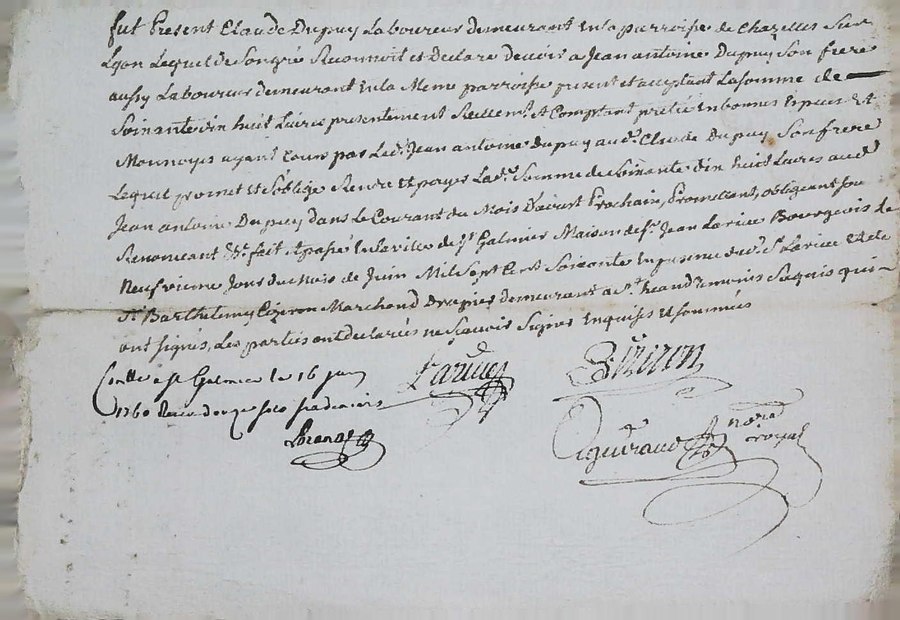 fut Present Claude Dupuy Laboureur demeurant En la parroisse de Chazelles Sur
Lyon Lequel de Son gré Reconnoit et Declare Devoir a Jean antoine Dupuy Son frere
aussy Laboureur demeurant En la Meme parroisse present et acceptant La somme de
Soixante dix huit Livres presentement Reellemt. et Comptant pretée En bonnes Especes Et
Monnoyes ayant Cours par Led. Jean antoine Dupuy aud. Claude Dupuy Son frere
Lequel promet et S'oblige Rendre et payer Lad. Somme de Soixante dix huit Livres aud.
Jean antoine Dupuy dans Le Courant du Mois D'aoust Prochain, Promettant, obligeant
Renonceant &c. fait Et passé En la ville de St. Galmier Maison de Sr. Jean Bourgeois Le
Neufvieme Jour du Mois de Juin Mil Sept Cent Soixante En presence dud. Sr. Et de
Sr. Barthelemy Marchand Drapier demeurant a St. temoins Requis qui
ont signés, Les parties ont declarés ne Scavoir Signer Enquises Et sommées
Conllé a St Galmier le 16 juin
1760 Reçu